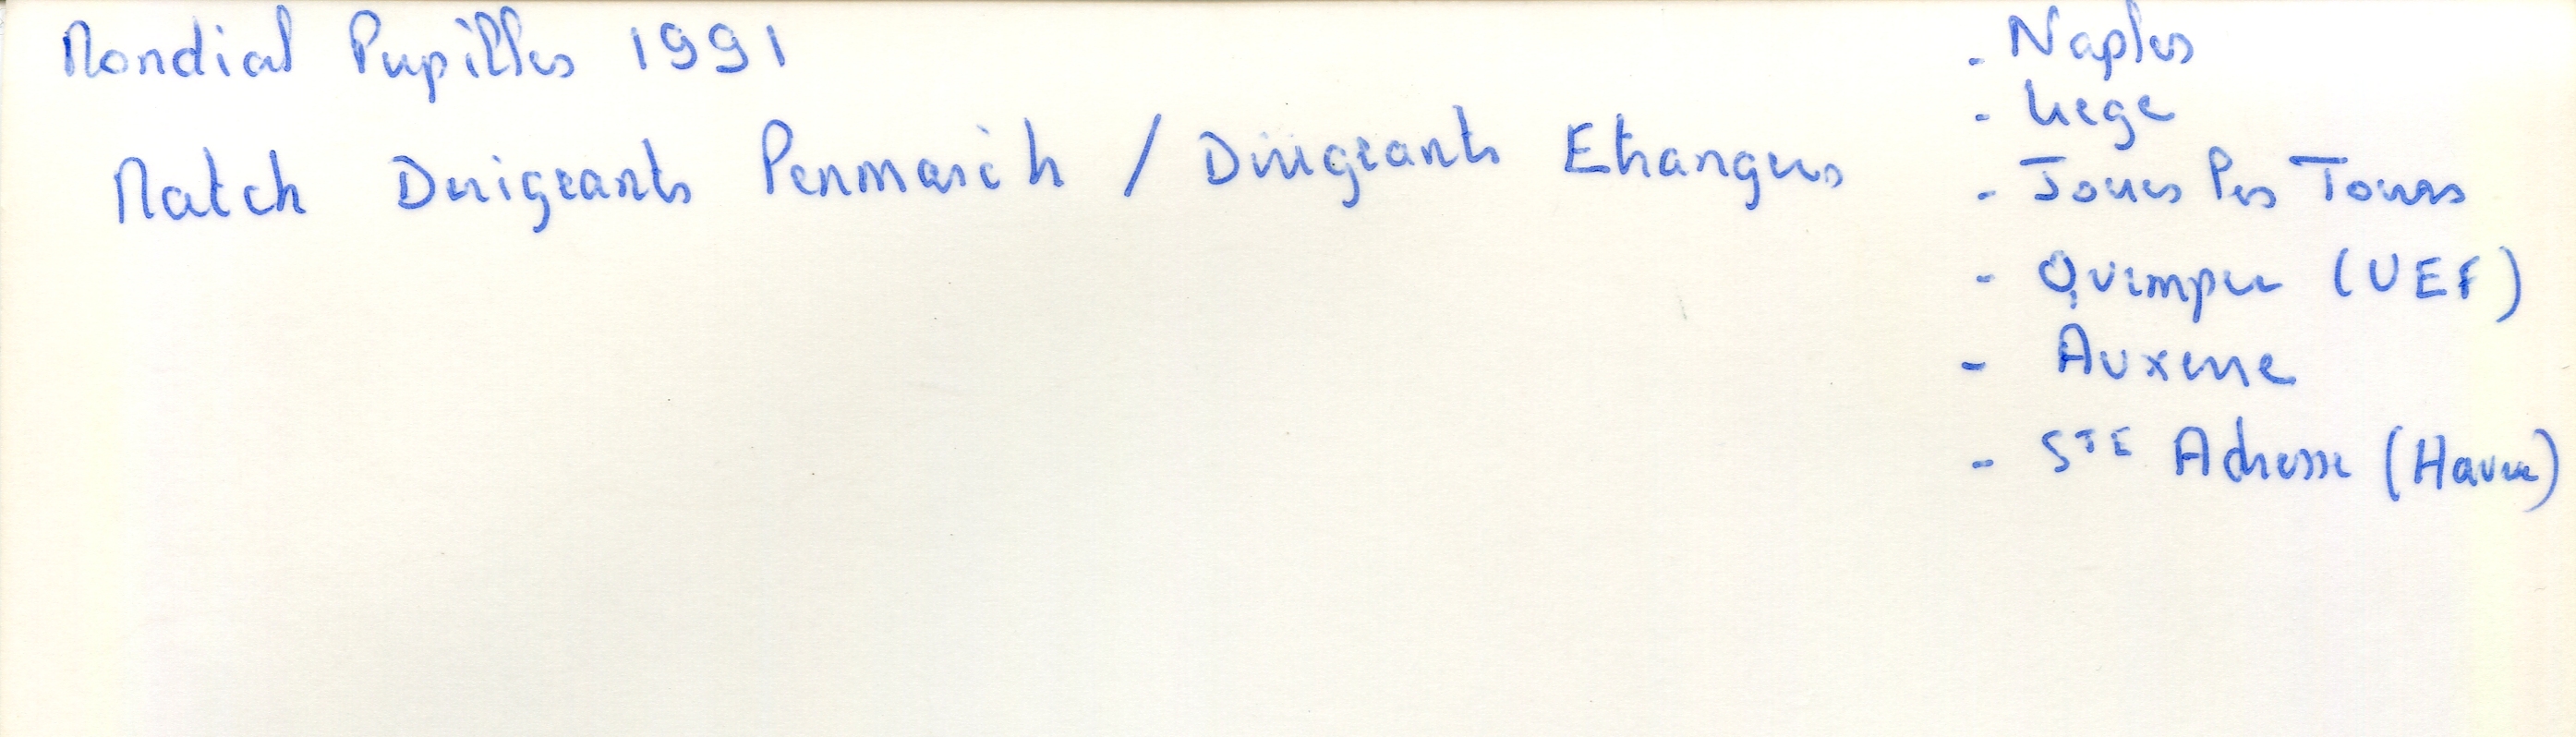 Mondial Pupilles 1991
Match Dirigeants Penmarch / Dirigeants Etrangers
- Naples
- Liege
- Joues les Tours
- Quimper (UEF)
- Auxerre
- STE Adresse (Havre)